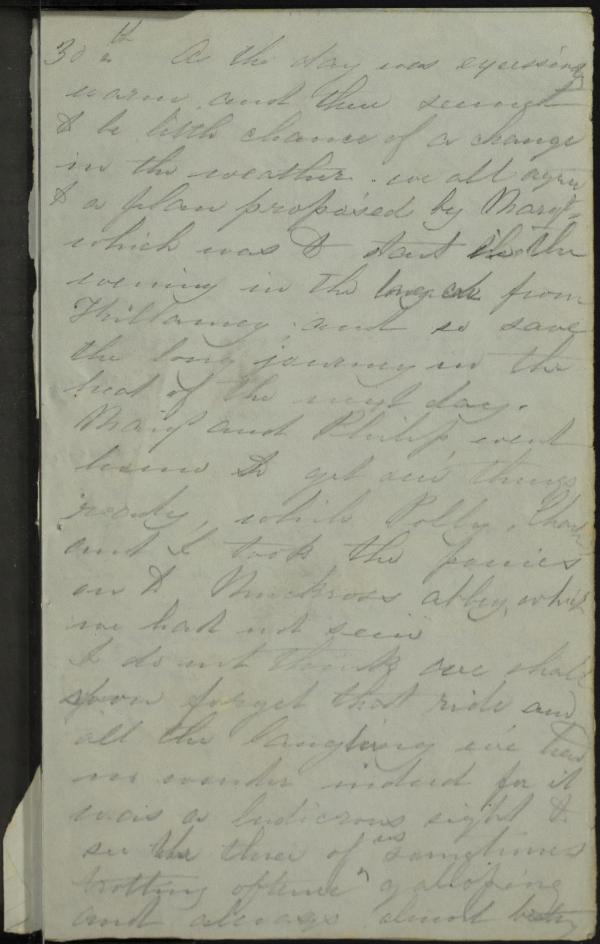 30th As the day was excessively
warm and there seemed
to be little chance of a change
in the weather. we all agreed
to a plan proposed by Mary
which was to start in the
evening in the long car from
Killarney and so save
the long journey in the
heat of the next day.
Mary and Philip went
home to get our things
ready, while Polly,
and I took the ponies
on to Muckross abbey, which
we had not seen
I do not think we shall
soon forget that ride and
all the laughing we had
no wonder indeed for it
was a ludicrous sight to
see the three of us sometimes
trotting oftener galloping
and always almost